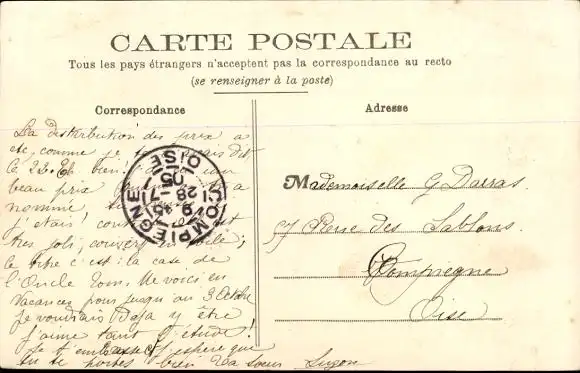 CARTE POSTALE
Tous les pays étrangers n'acceptent pas la correspondance au recto
(se renseigner à la poste)
Correspondance
Adresse
La distribution des prix a
ete comme je
ce 22. Et bien
beau prix
nomme
j'etais !
tres joli, couvert en toile ;
le titre c'est : la case de
l'Oncle Tom. Me voici en
vacances pour jusqu'au 3 Octobre
Je voudrais Déja y être
j'aime tant l'étude !
Je t'embrasse et j'espere que
tu te portes bien Ta soeur Suzon
COMPIEGNE
OISE
Mademoiselle G Darras
Pierre des Sablons
Compiegne
Oise